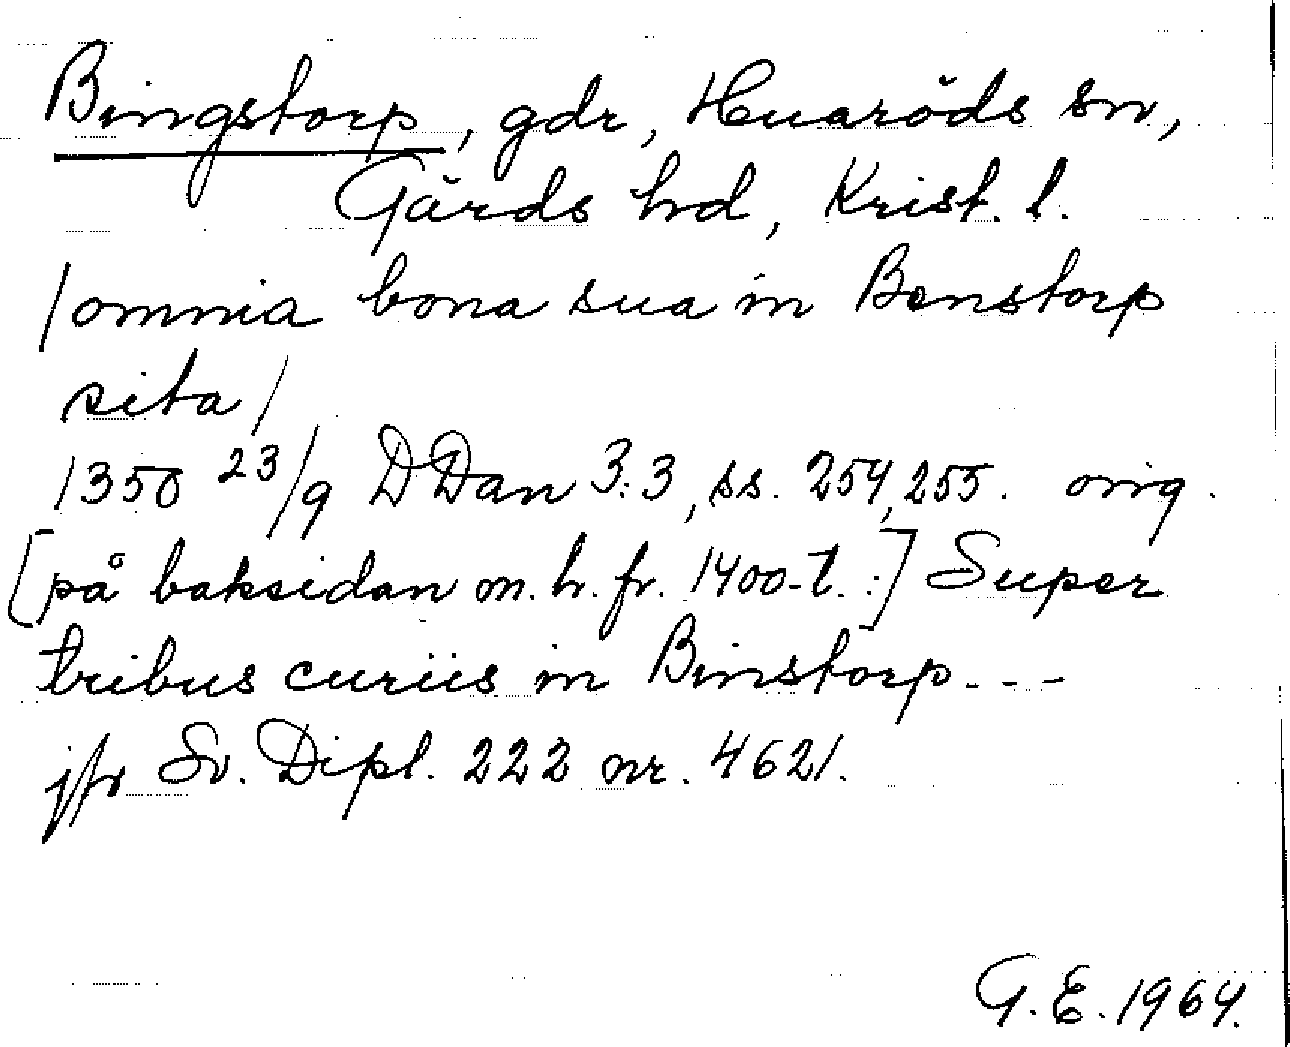 Bingstorp, gdr, Huaröds sn,
Gärds hd, Krist. l.
/omnia bona sua in Benstorp
sita/
1350 23/9 DDan 3:3, ss. 254, 255. orig.
[på baksidan m. h. fr. 1400-t.:] Super
tribus curiis in Binstorp ---
jfr Sv. Dipl. 222 nr. 4621.
G. E. 1964.